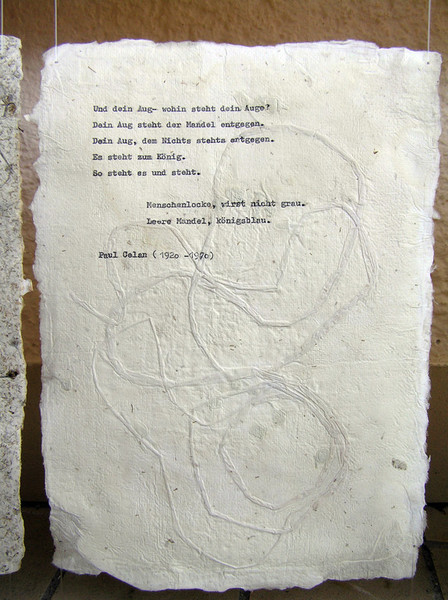 Und dein Aug- wohin steht dein Auge?
Dein Aug steht der Mandel entgegen.
Dein Aug, dem Nichts stehts entgegen.
Es steht zum König.
So steht es und steht.
Menschenlocke, wirst nicht grau.
Leere Mandel, königsblau.
Paul Celan (1920 -1970)